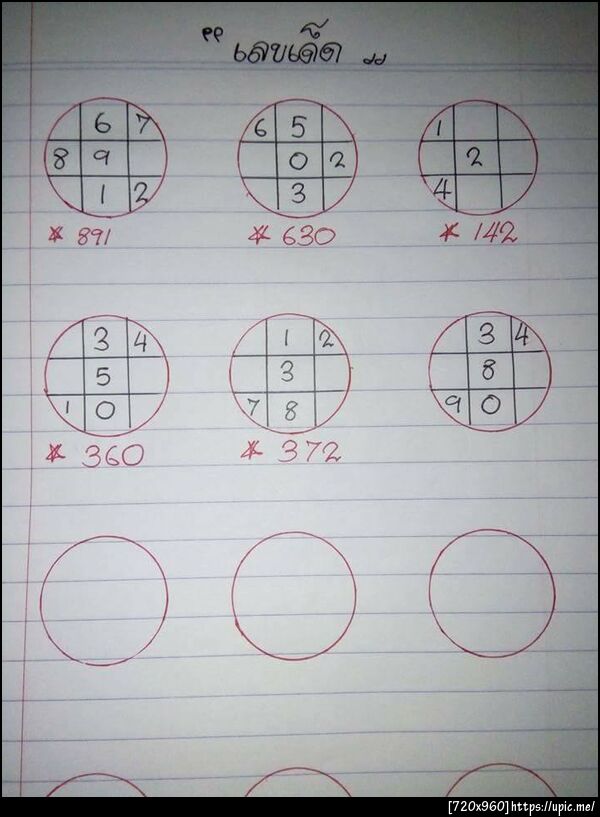 “ เลขเด็ด „
6 7
8 9
1 2
* 891
6 5
0 2
3
* 630
1
2
4
* 142
3 4
5
1 0
* 360
1 2
3
7 8
* 372
3 4
8
9 0
[720x960]https://upic.me/